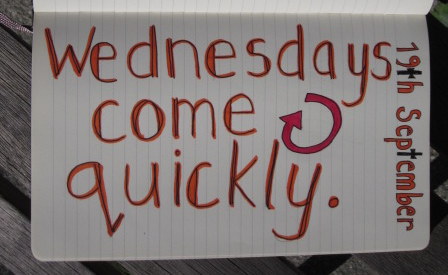 Wednesdays
come
quickly.
19th September